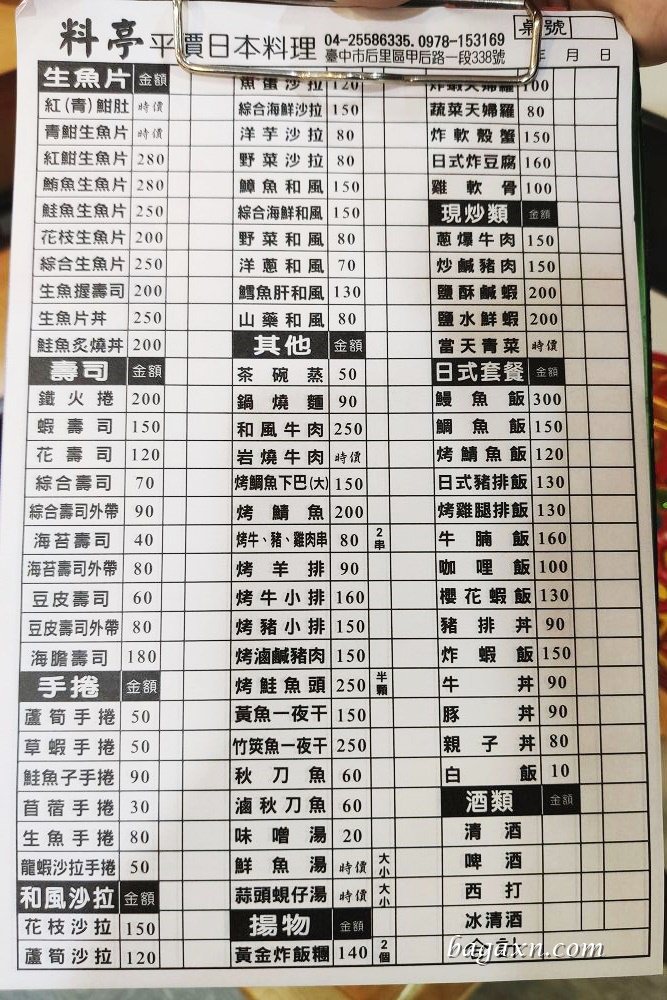 料亭 平價日本料理 04-25586335.0978-153169
臺中市后里區甲后路一段338號
桌號
年 月 日
生魚片 金額
紅(青)魽肚 時價
青魽生魚片 時價
紅魽生魚片 280
鮪魚生魚片 280
鮭魚生魚片 250
花枝生魚片 200
綜合生魚片 250
生魚握壽司 200
生魚片丼 250
鮭魚炙燒丼 200
壽司 金額
鐵火捲 200
蝦壽司 150
花壽司 120
綜合壽司 70
綜合壽司外帶 90
海苔壽司 40
海苔壽司外帶 80
豆皮壽司 60
豆皮壽司外帶 80
海膽壽司 180
手捲 金額
蘆筍手捲 50
草蝦手捲 50
鮭魚子手捲 90
苜蓿手捲 30
生魚手捲 80
龍蝦沙拉手捲 50
和風沙拉 金額
花枝沙拉 150
蘆筍沙拉 120
魚蛋沙拉 120
綜合海鮮沙拉 150
洋芋沙拉 80
野菜沙拉 80
鱆魚和風 150
綜合海鮮和風 150
野菜和風 80
洋蔥和風 70
鱈魚肝和風 130
山藥和風 80
其他 金額
茶碗蒸 50
鍋燒麵 90
和風牛肉 250
岩燒牛肉 時價
烤鯛魚下巴(大) 150
烤鯖魚 200
烤牛、豬、雞肉串 80 2串
烤羊排 90
烤牛小排 160
烤豬小排 150
烤滷鹹豬肉 150
烤鮭魚頭 250 半顆
黃魚一夜干 150
竹筴魚一夜干 250
秋刀魚 60
滷秋刀魚 60
味噌湯 20
鮮魚湯 時價 大小
蒜頭蜆仔湯 時價 大小
揚物 金額
黃金炸飯糰 140 2個
炸蝦天婦羅 100
蔬菜天婦羅 80
炸軟殼蟹 150
日式炸豆腐 160
雞軟骨 100
現炒類 金額
蔥爆牛肉 150
炒鹹豬肉 150
鹽酥鹹蝦 200
鹽水鮮蝦 200
當天青菜 時價
日式套餐 金額
鰻魚飯 300
鯛魚飯 150
烤鯖魚飯 120
日式豬排飯 130
烤雞腿排飯 130
牛腩飯 160
咖哩飯 100
櫻花蝦飯 130
豬排丼 90
炸蝦飯 150
牛丼 90
豚丼 90
親子丼 80
白飯 10
酒類 金額
清酒
啤酒
西打
冰清酒
合計
bagaxn.com